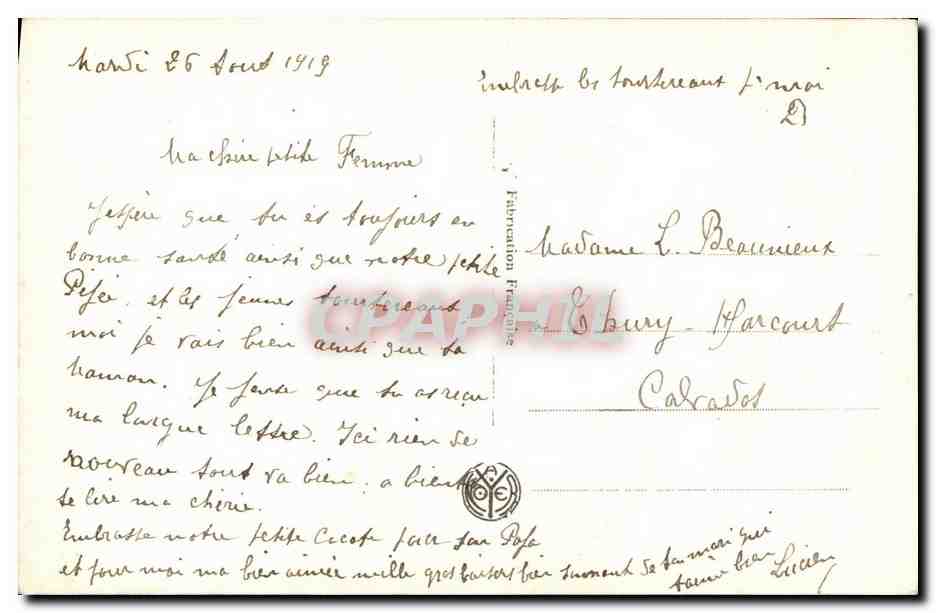 Mardi 26 Aout 1919
Embrasse les tourtereaux pr moi
Ma chère petite Femme
J'espère que tu es toujours en
bonne santé ainsi que notre petite
et les jeunes tourtereaux
moi je vais bien ainsi que ta
Maman. Je pense que tu as reçu
ma longue lettre. Ici rien de
nouveau tout va bien. a bientôt
te lire ma chérie.
Embrasse notre petite Cocote pour son Papa
et pour moi ma bien aimée mille gros baisers bien de ton mari qui
t'aime bien
Lucien
Fabrication Française
Madame L. Beaunieux
Thury-Harcourt
Calvados
CPAPHIL